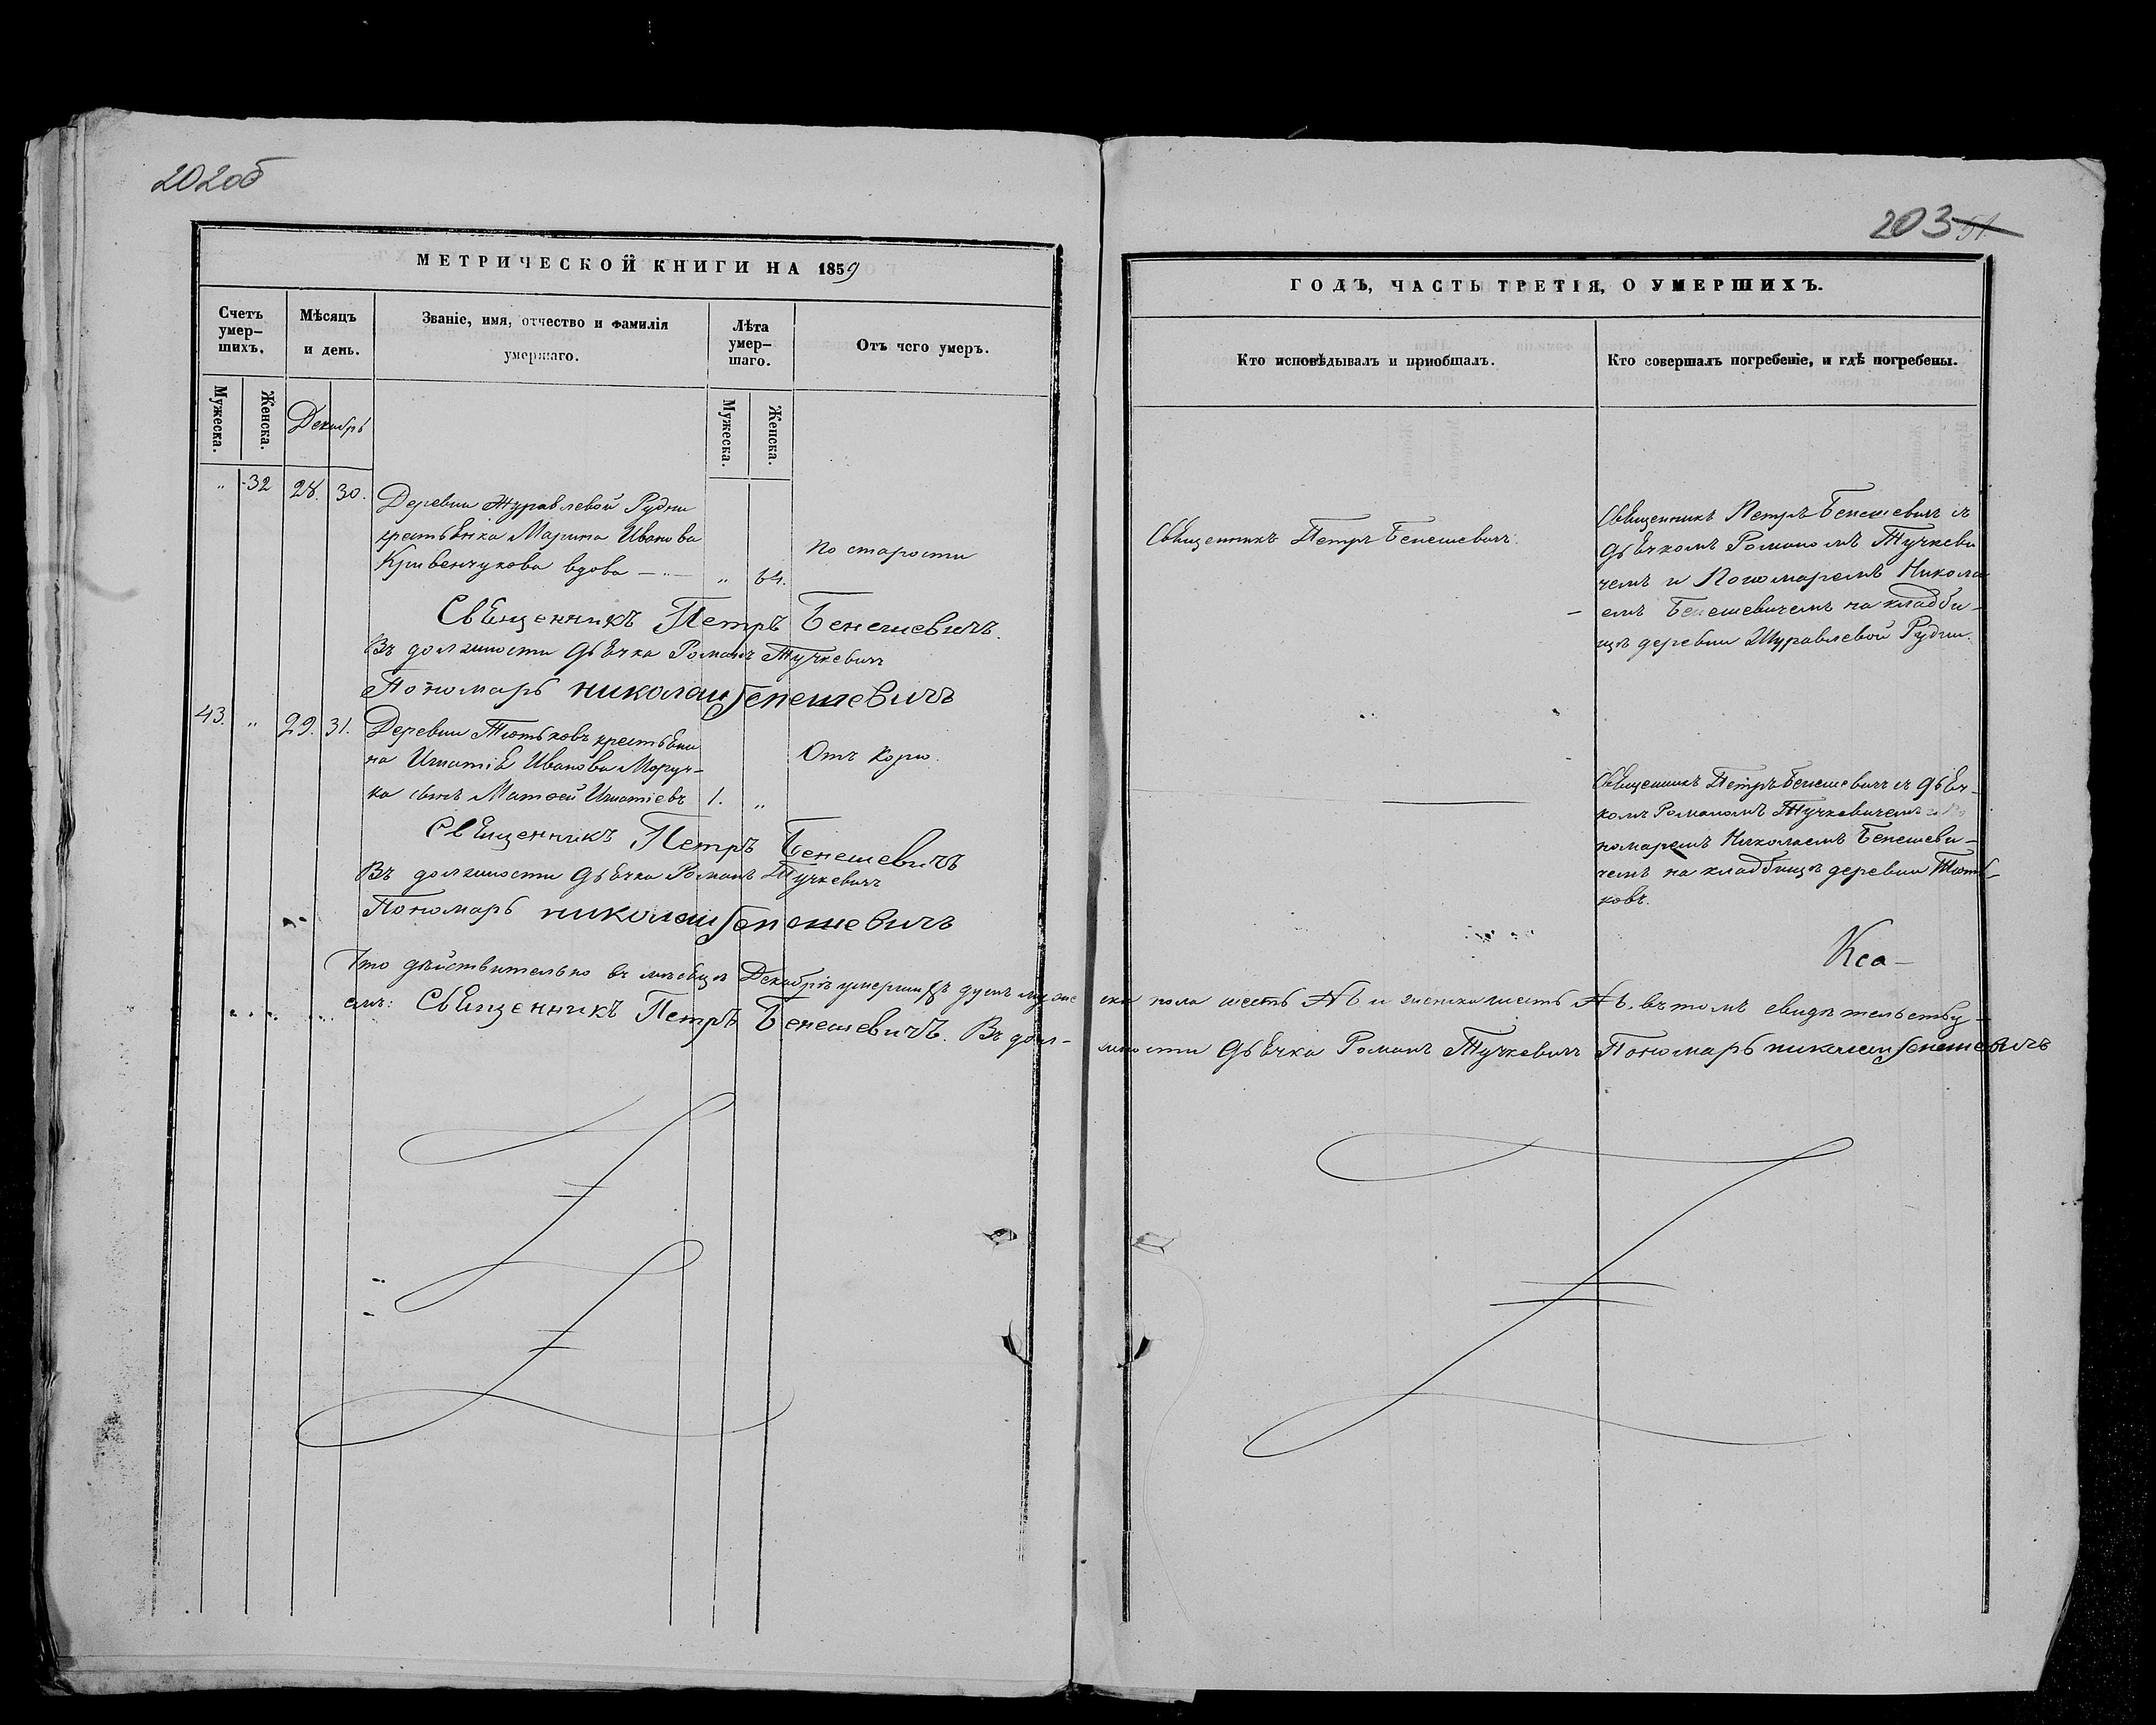 202об
203 51.
МЕТРИЧЕСКОЙ КНИГИ НА 1859
ГОДЪ, ЧАСТЬ ТРЕТІЯ, О УМЕРШИХЪ.
Счетъ умер-
шихъ.
Мѣсяцъ
и день.
Званіе, имя, отчество и фамилія
умершаго.
Лѣта
умер-
шаго.
Отъ чего умеръ.
Кто исповѣдывалъ и приобщалъ.
Кто совершалъ погребеніе, и гдѣ погребены.
Мужеска.
Женска.
Декабрь
Мужеска.
Женска.
" 32 28. 30.
Деревни Журавлевой Рудни
крестьянка Марина Иванова
Кривенчукова вдова — " —
" 64.
По старости
Священникъ Петръ Бенешевичъ.
Священникъ Петръ Бенешевичъ съ
дьячкомъ Романомъ Тучкеви
чемъ и Пономаремъ Никола
емъ Бенешевичемъ на кладби-
щѣ деревни Журавлевой Рудни.
Священникъ Петръ Бенешевичъ.
Въ должности дьячка Романъ Тучкевичъ
Пономарь николай бенешевичъ
43. " 29. 31.
Деревни Тютьковъ крестьяни
на Игнатія Иванова Моруч-
ка сынъ Матѳей Игнатіевъ
1. "
Отъ Корю.
Священникъ Петръ Бенешевичъ съ дьяч-
комъ Романомъ Тучкевичемъ
номаремъ Николаемъ Бенешеви-
чемъ на кладбищѣ деревни Тють-
ковъ.
Священникъ Петръ Бенешевичъ
Въ должности дьячка Романъ Тучкевичъ
Пономарь николай бенешевичъ
Кса-
Что дѣйствительно въ мѣсяцѣ Декабрѣ умершихъ душъ муже
ска пола шесть № и женска шесть №. въ томъ свидѣтельству-
емъ: Священникъ Петръ Бенешевичъ. Въ долж-
ности дьячка Романъ Тучкевичъ Пономарь николай бенешевичъ